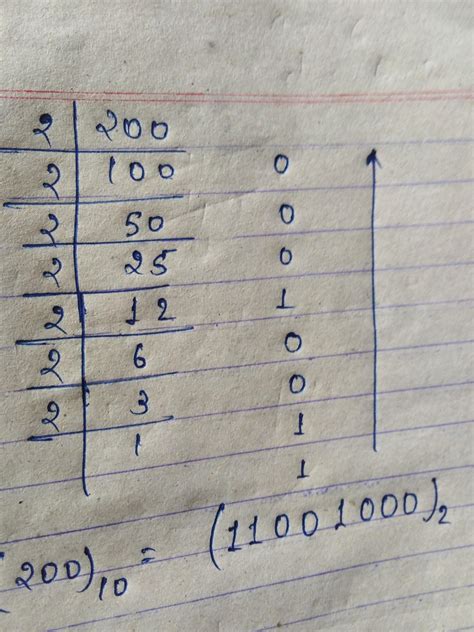 2 200
2 100 0
2 50 0
2 25 0
2 12 1
2 6 0
2 3 0
1 1
1
(200)10 = (11001000)2